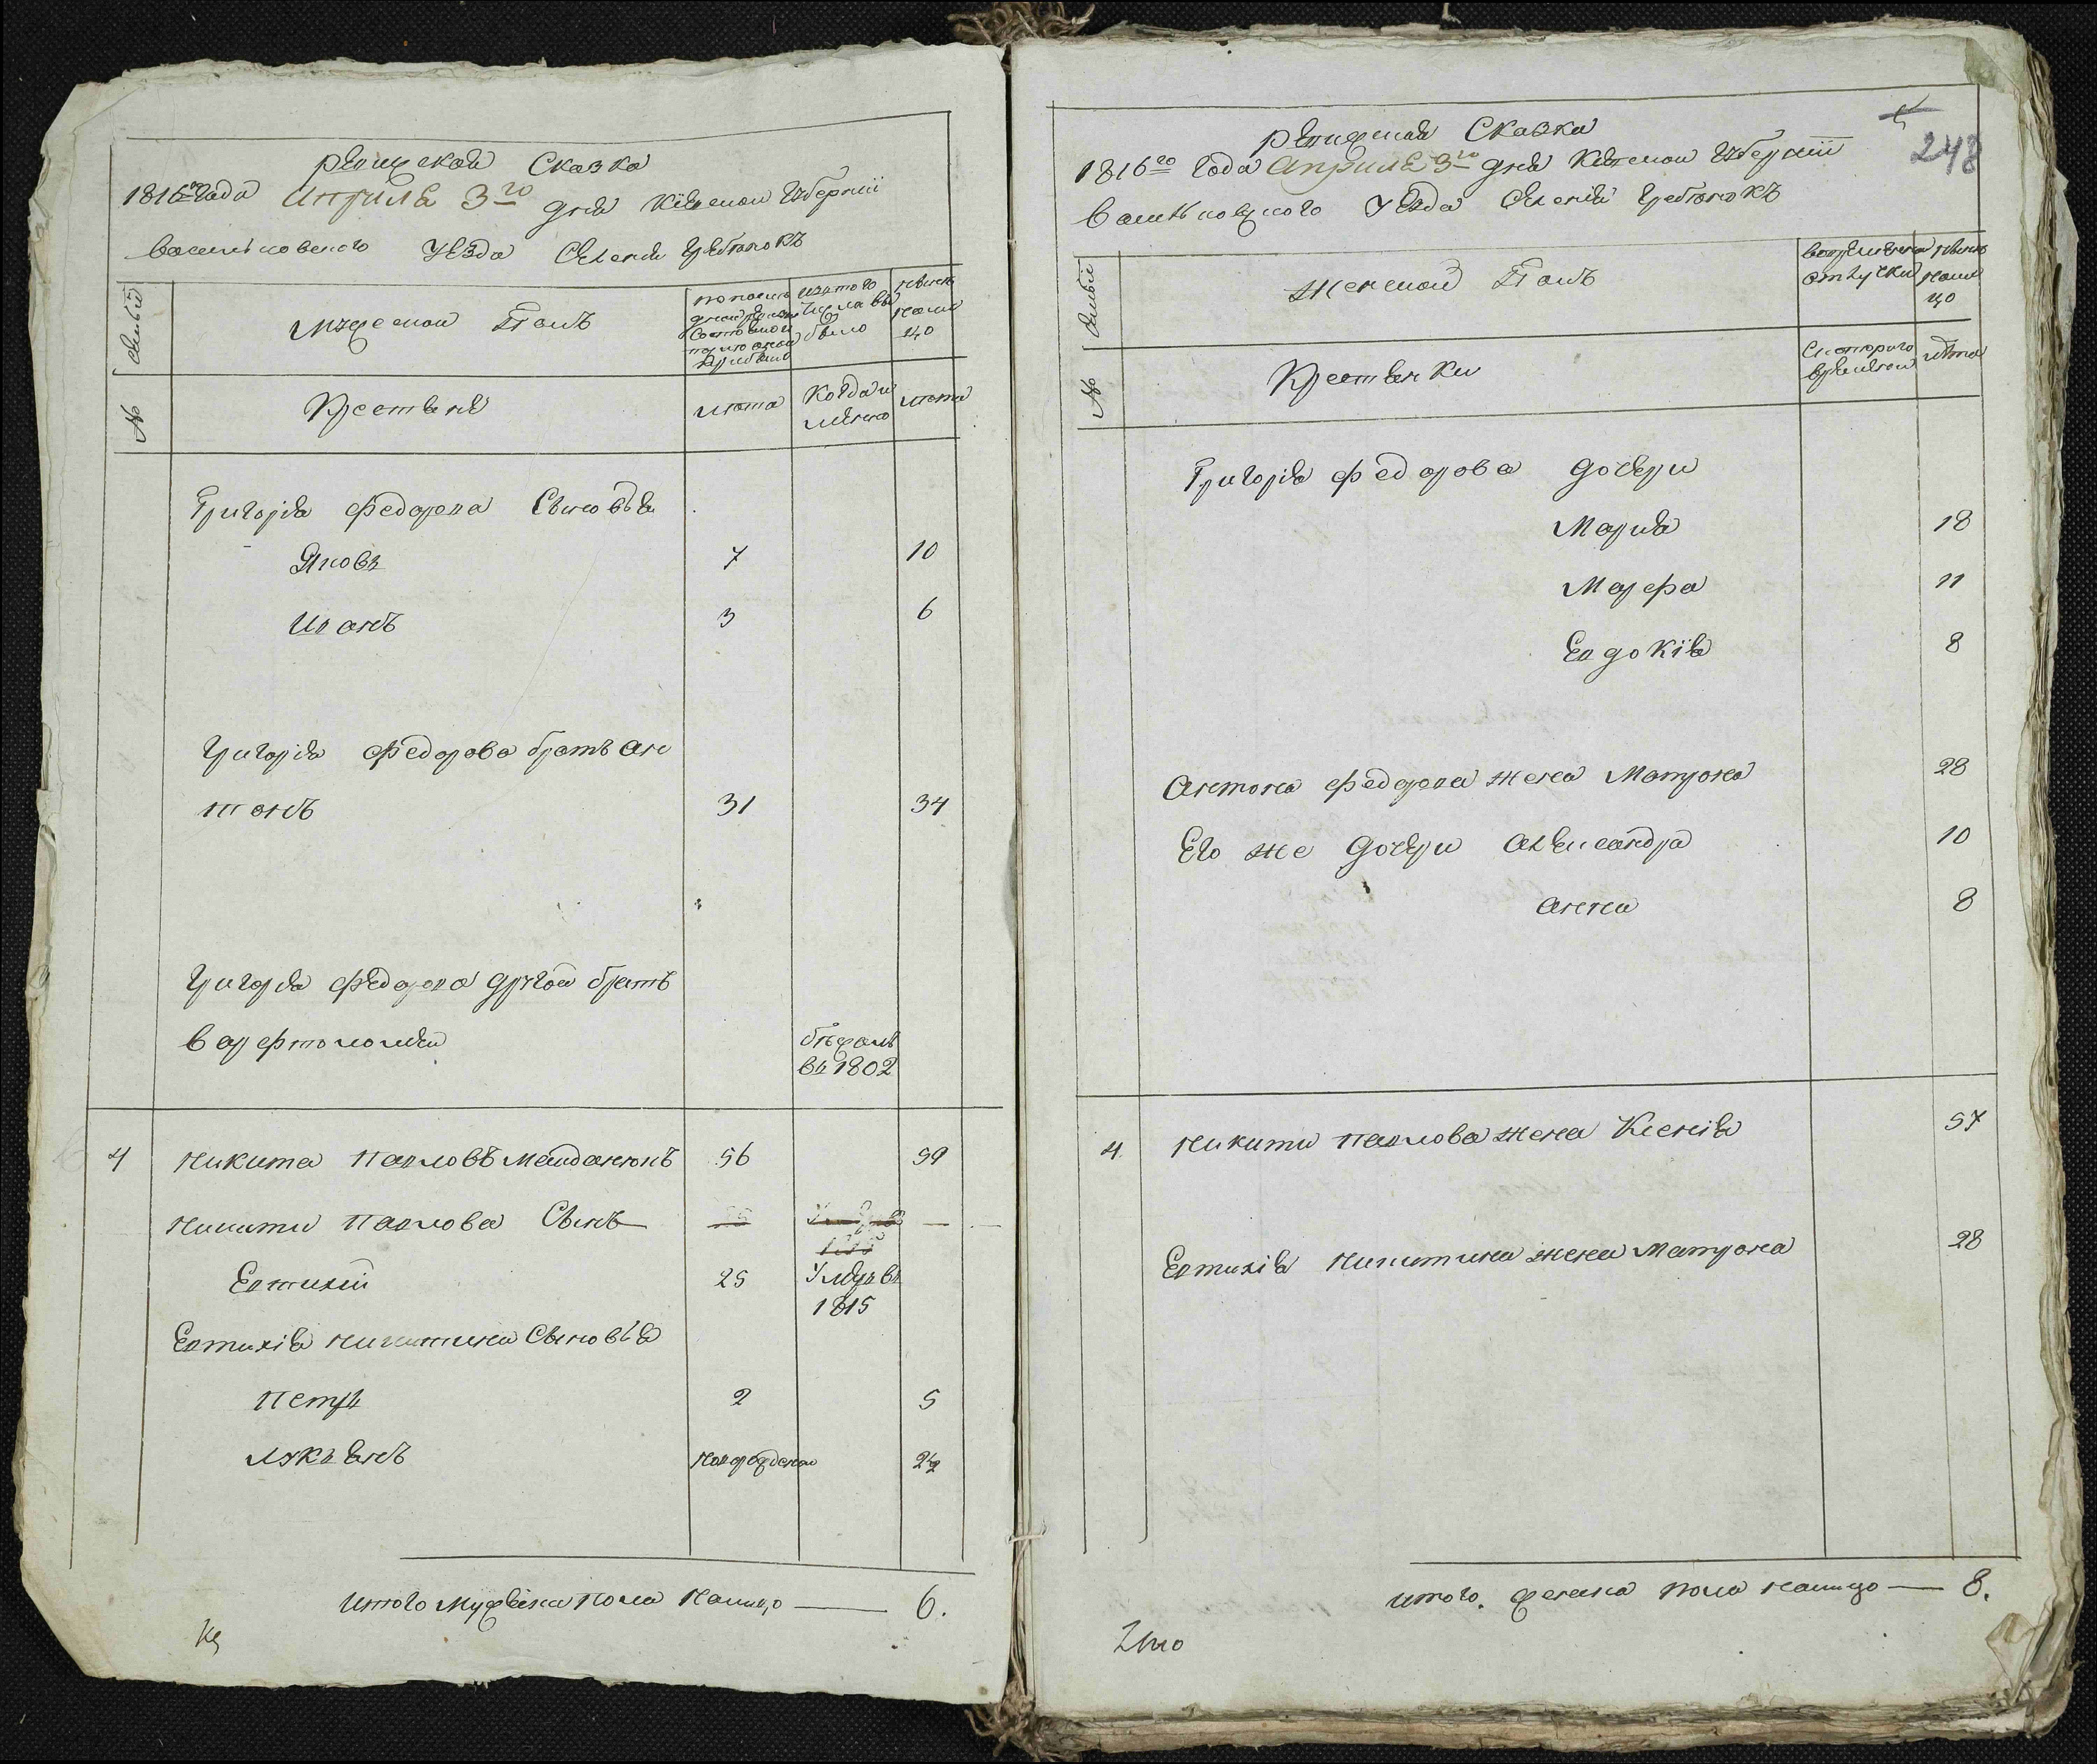 ревизская Сказка
1816го года Апреля 3го дня Киевской Губернии
васильковского уезда Селения Гребенокъ
№ Семьи
мужеской Полъ
по последней ревизии состояло и после оной прибыло
изъ того числа выбыло
ныне на лицо
Крестьяне
лета
когда именно
лета
Григорія Федорова Сыновья
Яковъ 7 10
Иванъ 3 6
Григорія Федорова братъ Ан
тонъ 31 34
Григорія Федорова другой братъ
варфтоломей бежалъ
въ 1802
4 Никита Павловъ Майданюкъ 56 59
Никиты Павлова Сынъ
Евтихій 25 Умеръ въ
1815
Евтихія Никитина Сыновья
Петръ 2 5
Лукьянъ новорожденой 2
итого мужеска пола налицо — 6.
ревизская Сказка
248
1816го года Апреля 3го дня Киевской Губерніи
васильковского уезда Селенія Гребенокъ
№ Семьи
женской Полъ
во временной отлучки
ныне на лицо
Крестьянки
Скоторого времени
лета
Григорія Федорова дочери
Марія 18
Марфа 11
Евдокія 8
Антона Федорова жена Матрона 28
Его же дочери Александра 10
Анна 8
4 Никиты Павлова жена Ксенія 57
Евтихія Никитина жена Матрона 28
итого. женска пола налицо — 8.